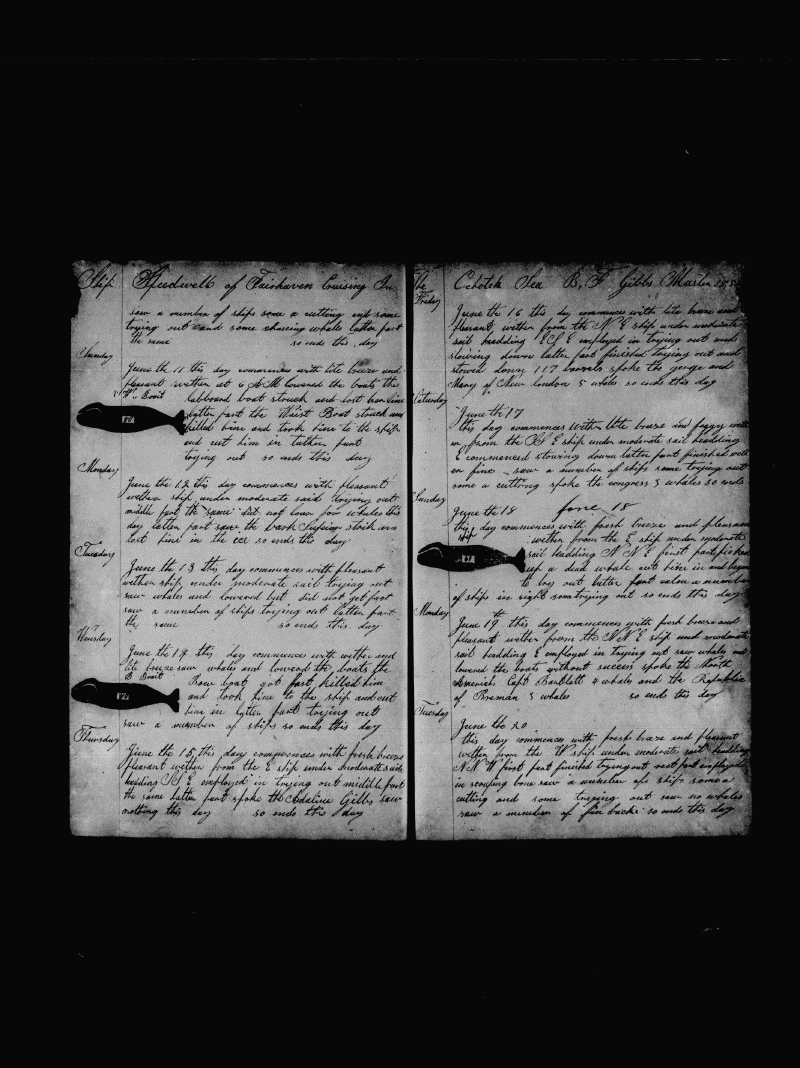 Ship Speedwell of Fairhaven Cruising In
saw a number of ships some a cutting and some
trying out and some chaseing whales latter part
the same so ends this day
Sunday
June the 11 this day commences with lite breeze and
pleasant wether at 6 A M lowered the boats the
W. Boat labboard boat struck and lost
latter part the Waist Boat struck and
killed hine and took hine to the ship
and cut him in latter part
trying out so ends this day
Monday
June the 12 this day commences with pleasant
wether ship under moderate said trying out
middle part the same did not lower for whales this
day latter part saw the bark strick and
lost hine in the ice so ends this day
Tuesday
June the 13 this day commences with pleasant
wether ship under moderate sail trying out
saw whales and lowered but did not get fast
saw a number of ships trying out latter part
the same so ends this day
June the 14 this day commences with wether and
lite breeze saw whales and lowered the boats the
B Boat Bow boat got fast killed him
and took hine to the ship and cut
him in latter part trying out
saw a number of ships so ends this day
Thursday
June the 15 this day commences with fresh breeze
pleasant wether from the E ship under moderate sail
heading S E employed in trying out middle part
the same latter part spoke the Adaline Gibbs saw
nothing this day so ends this day
The Ochotck Sea B. F Gibbs Master
Friday
June the 16 this day commences with lite breeze and
pleasant wether from the N E ship under moderate
sail heading employed in trying out and
stowing down latter part finished trying out and
stowed down 117 barrels spoke the gorge and
Mary of New London 5 whales so ends this day
Saturday
June the 17
this day commences with lite breeze and foggy
from the S E ship under moderate sail heading
E commenced stowing down latter part finished
saw a number of ships some trying out
some a cutting spoke the congress 3 whales so ends
Sunday
June th 18 June 18
this day commences with fresh breeze and pleasant
wether from the E ship under moderate
sail heading N N E first part picked
up a dead whale cut hine in and began
to boy out latter part calm a number
of ships in sight some trying out so ends this day
Monday
June 19 this day commences with fresh breeze and
pleasant wether from the N N E ship and moderate
sail heading E employed in trying out saw whales and
lowered the boats without success spoke the North
America Capt Bartlett 4 whales and the Republic
of Breman 3 whales so ends this day
Tuesday
June the 20
this day commences with fresh breeze and pleasant
wether from the W ship under moderate sail heading
N N W first part finished trying out next part employed
in scraping bone saw a number of ships some a
cutting and some trying out saw no whales
saw a number of fin backs so ends this day